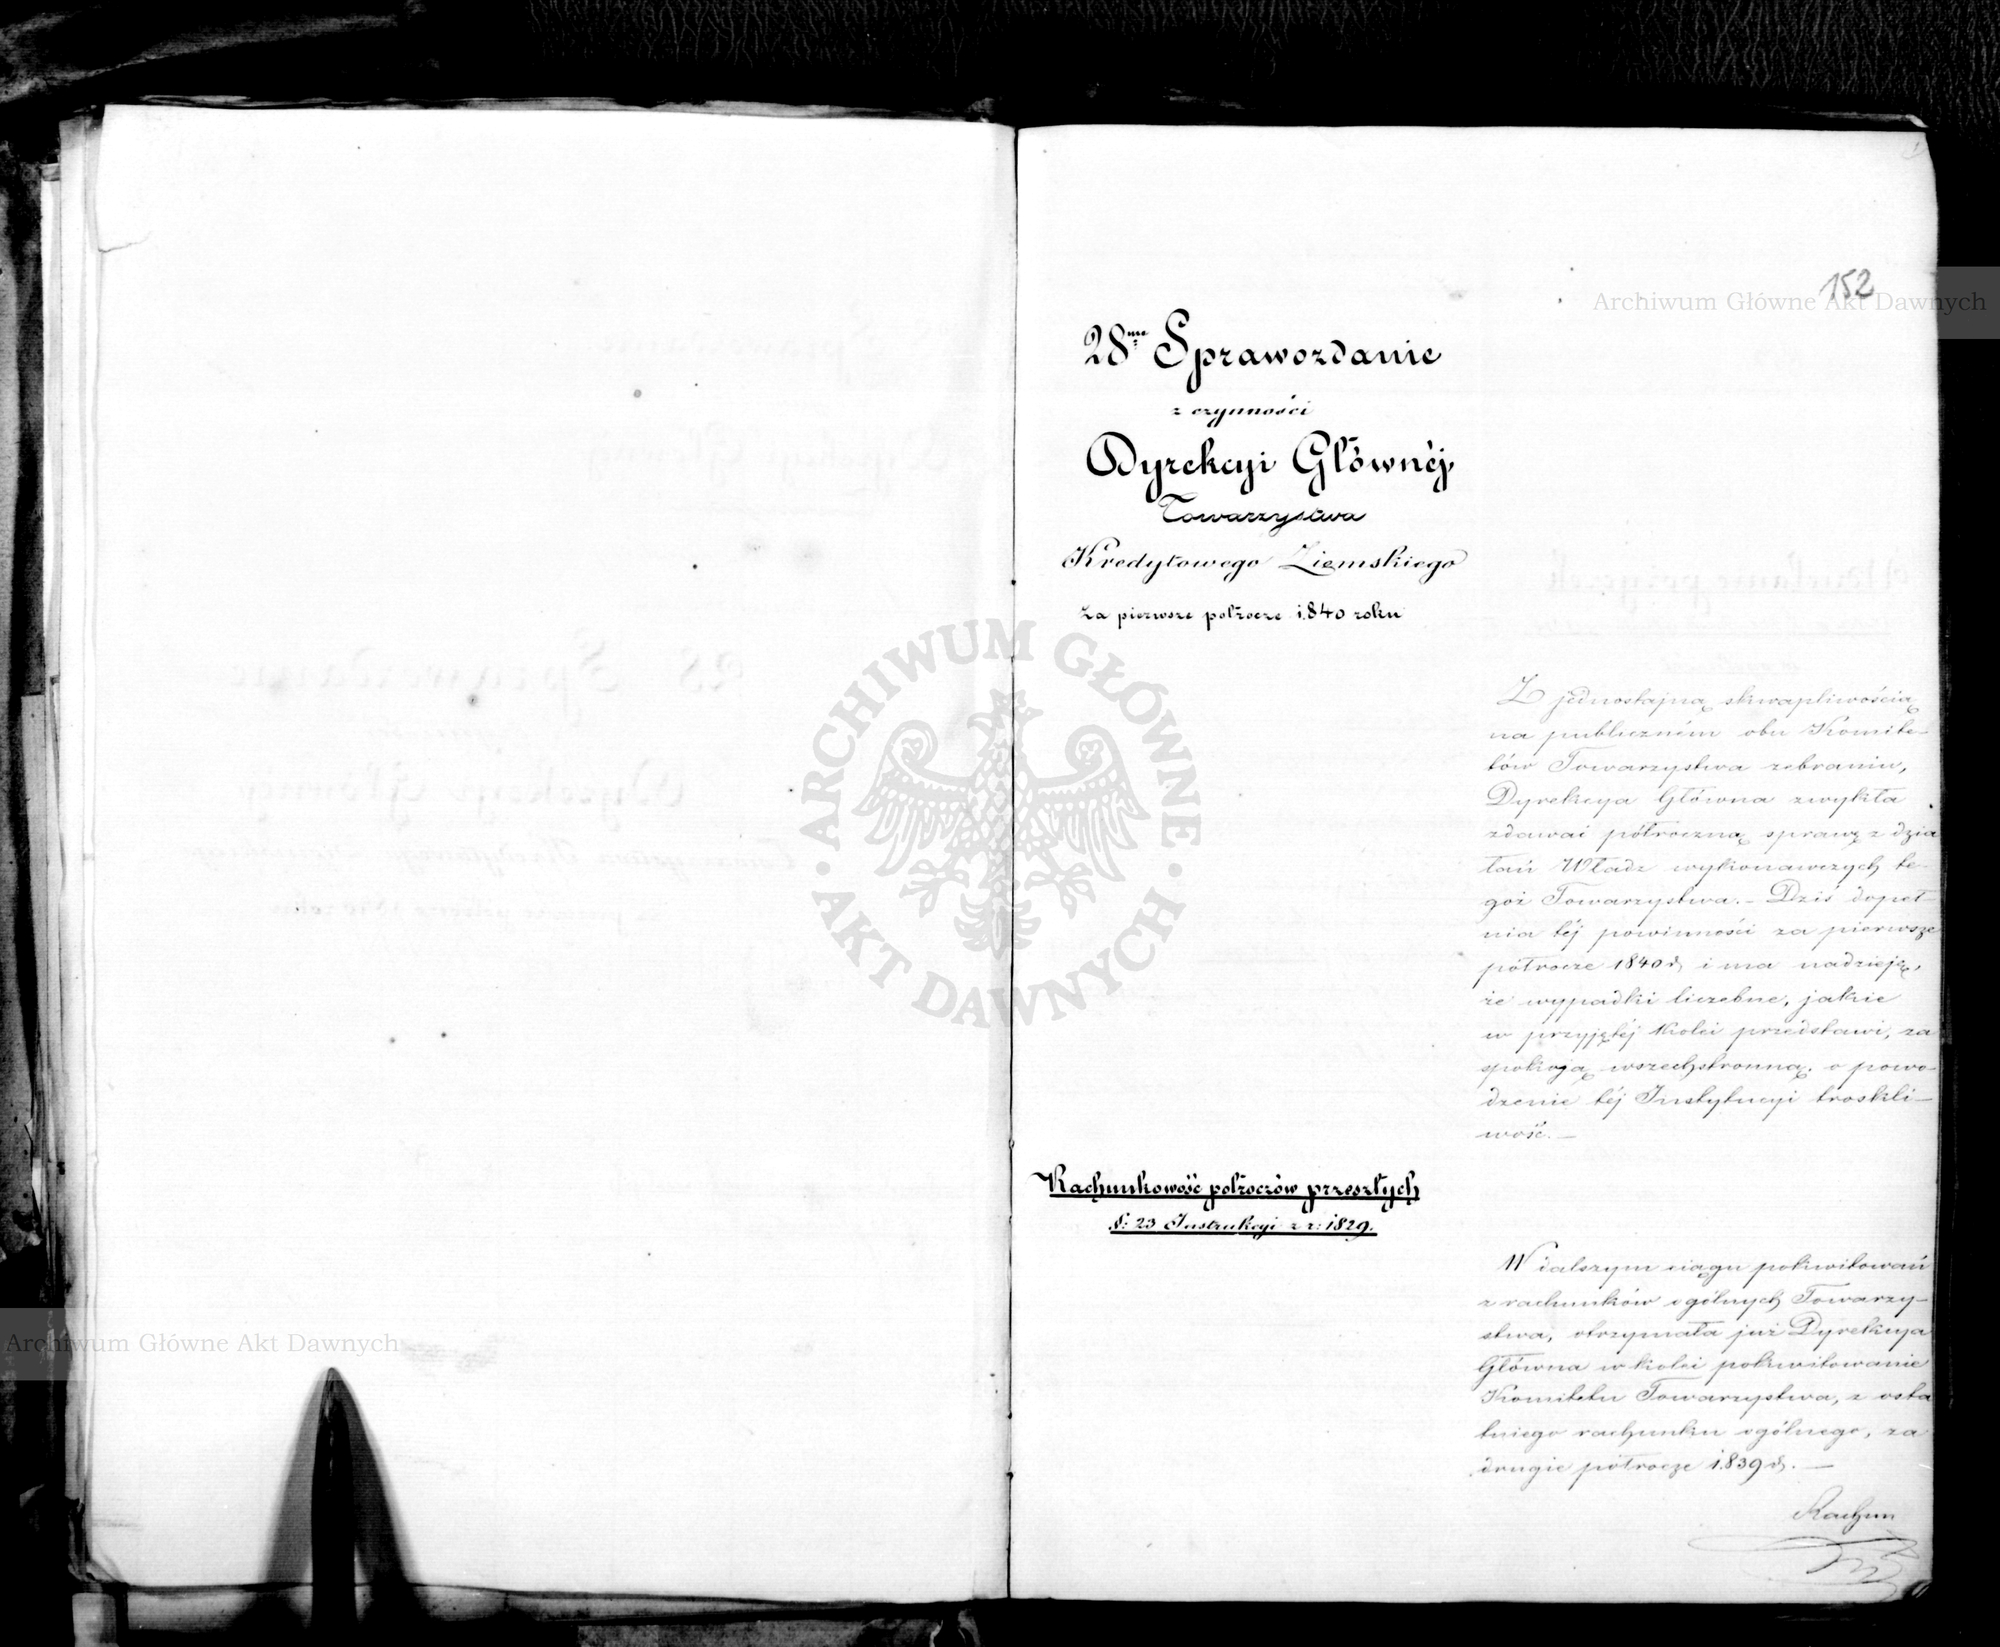 152
28me Sprawozdanie
z czynności
Dyrekcyi Głównéj
Towarzystwa
Kredytowego Ziemskiego
za pierwsze półrocze 1840 roku
Z jednostajną skwapliwością
na publiczném obu Komite-
tów Towarzystwa zebraniu,
Dyrekcya Główna zwykła
zdawać półroczną sprawę z dzia
łań Władz wykonawczych te-
goż Towarzystwa. – Dziś dopeł-
nia téj powinności za pierwsze
półrocze 1840 r. i ma nadzieję,
że wypadki liczebne, jakie
w przyjętéj kolei przedstawi, za
spokoją wszechstronną o powo-
dzenie téj Instytucyi troskli-
wość. –
Rachunkowość półroczów przeszłych
§: 23 Instrukcyi z r: 1829.
W dalszym ciągu pokwitowań
z rachunków ogólnych Towarzy-
stwa, otrzymała już Dyrekcya
Główna w kolei pokwitowanie
Komitetu Towarzystwa, z osta
tniego rachunku ogólnego, za
drugie półrocze 1839 r. –
Rachun
ARCHIWUM GŁÓWNE AKT DAWNYCH
Archiwum Główne Akt Dawnych
Archiwum Główne Akt Dawnych